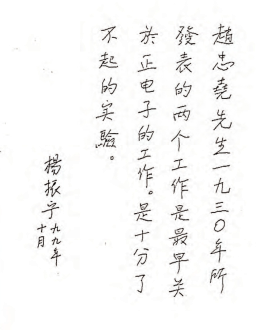 趙忠堯先生一九三〇年所
發表的两个工作是最早关
於正电子的工作。是十分了
不起的实驗。
楊振宁
一九九九年
十月